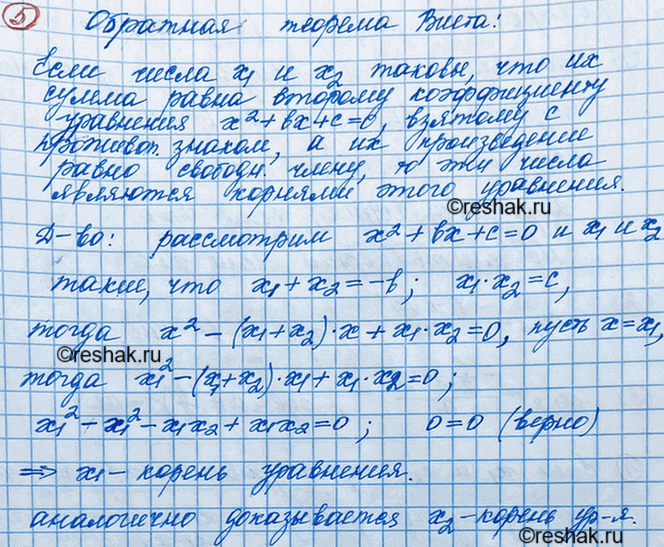 5 Обратная теорема Виета:
Если числа x₁ и x₂ таковы, что их
сумма равна второму коэффициенту
уравнения x²+bx+c=0, взятому с
противоп. знаком, а их произведение
равно свободн. члену, то эти числа
являются корнями этого уравнения.
©reshak.ru
Д-во: рассмотрим x²+bx+c=0 и x₁ и x₂
такие, что x₁+x₂=-b; x₁·x₂=c,
тогда x²-(x₁+x₂)·x+x₁·x₂=0, пусть x=x₁,
©reshak.ru
тогда x₁²-(x₁+x₂)·x₁+x₁·x₂=0;
x₁²-x₁²-x₁x₂+x₁x₂=0; 0=0 (верно)
⇒ x₁-корень уравнения.
©reshak.ru
аналогично доказывается x₂-корень ур-я.